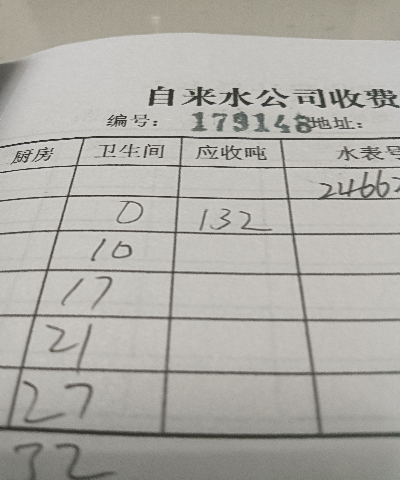 自来水公司收费
编号: 179148 地址:
厨房 卫生间 应收吨 水表号
24662
0 132
10
17
21
27
32